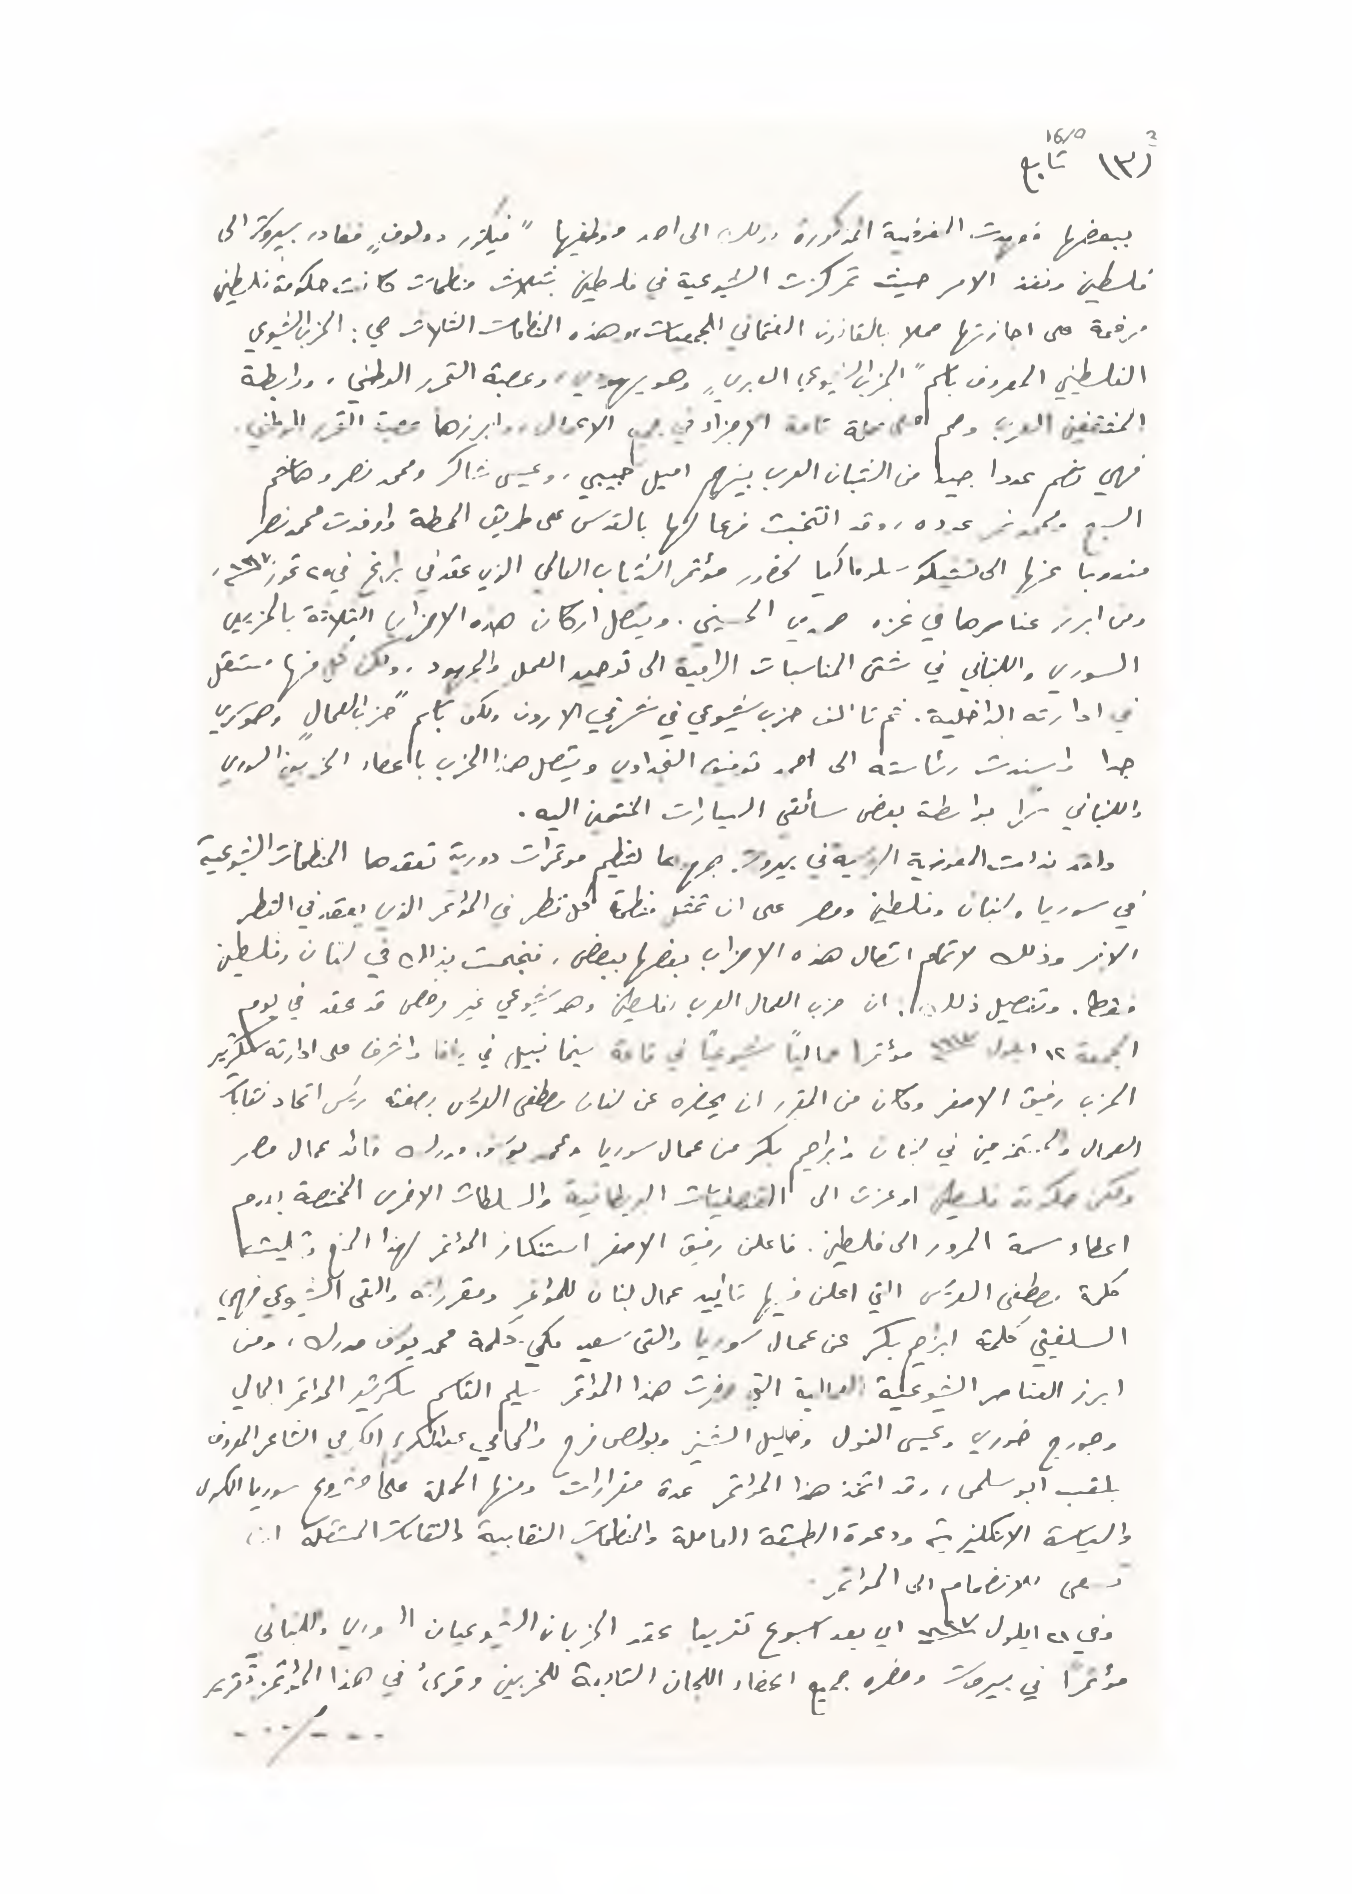 16/9
(٣) تابع
ببعضها فعهدت المفوضية المذكورة بذلك الى احد موظفيها "فيكتور دولوف" فغادر بيروت الى
فلسطين ونفذ الامر حيث تمركزت الشيوعية في فلسطين بثلاث منظمات كانت حكومة فلسطين
مرغمة على اجازتها عملا بالقانون العثماني للجمعيات، وهذه المنظمات الثلاث هي: الحزب الشيوعي
الفلسطيني المعروف باسم "الحزب الشيوعي العبري" وهو يهودي، وعصبة التحرر الوطني، ورابطة
المثقفين العرب وهم على صلة تامة في جميع الاعمال، وابرزها عصبة التحرر الوطني.
فهي تضم عددا جيدا من الشبان العرب بينهم اميل حبيبي، وعيسى شاكر ومحمد نصر وهاشم
السبع ومحمد نمر عوده، وقد انتخبت فرعا لها بالقدس على طريق المحطة واوفدت محمد نصر
مندوبا عنها الى تشيكوسلوفاكيا لحضور مؤتمر الشباب العالمي الذي عقد في براغ في ٢٥ تموز ١٩٤٧،
ومن ابرز عناصرها في غزه حمدي الحسيني. ويتصل اركان هذه الاحزاب الثلاثة بالحزبين
السوري واللبناني في شتى المناسبات الرامية الى توحيد العمل والجهود، ولكن كل منها مستقل
في ادارته الداخلية. ثم تالف حزب شيوعي في شرقي الاردن ولكن باسم "حزب العمال" وهو سري
جدا واسندت رئاسته الى احمد توفيق البغدادي ويتصل هذا الحزب باعضاء الحزبين السوري
واللبناني سرا بواسطة بعض سائقي السيارات المنتمين اليه.
ولقد بذلت المفوضية الروسية في بيروت جهودها لتنظيم مؤتمرات دورية تعقدها المنظمات الشيوعية
في سوريا ولبنان وفلسطين ومصر على ان تمثل منظمة كل قطر في المؤتمر الذي يعقد في القطر
الاخر وذلك لاتمام اتصال هذه الاحزاب بعضها ببعض، فنجحت بذلك في لبنان وفلسطين
فقط. وتفصيل ذلك: ان حزب العمال العرب بفلسطين وهو شيوعي غير مرخص قد عقد في يوم
الجمعة ١٢ ايلول ١٩٤٧ مؤتمرا عماليا شيوعيا في قاعة سينما نبيل في يافا واشرف على ادارته سكرتير
الحزب رفيق الاصفر وكان من المقرر ان يحضره عن لبنان مصطفى العريس بصفته رئيس اتحاد نقابات
العمال والمستخدمين في لبنان وابراهيم بكر من عمال سوريا ومحمد يوسف مدرك قائد عمال مصر
ولكن حكومة فلسطين اوعزت الى القنصليات البريطانية والسلطات الاخرى المختصة بعدم
اعطاء سمة المرور الى فلسطين. فاعلن رفيق الاصفر استنكار المؤتمر لهذا المنع وتليت
كلمة مصطفى العريس التي اعلن فيها تاييد عمال لبنان للمؤتمر ومقرراته والقى الشيوعي فهمي
السلفيتي كلمة ابراهيم بكر عن عمال سوريا والقى سعيد مكي كلمة محمد يوسف مدرك، ومن
ابرز العناصر الشيوعية العمالية التي حضرت هذا المؤتمر سليم القاسم سكرتير المؤتمر العمالي
وجورج خوري وعيسى الغول وخليل الشنير وبولص فرح والمحامي عبد الكريم الكرمي الشاعر المعروف
بلقب ابو سلمى، وقد اتخذ هذا المؤتمر عدة مقرارات ومنها الحملة على مشروع سوريا الكبرى
والسياسة الانكليزية ودعوة الطبقة العاملة والمنظمات النقابية والنقابات المستقلة ان
تسعى للانضمام الى المؤتمر.
وفي ٢١ ايلول ١٩٤٧ اي بعد اسبوع تقريبا عقد الحزبان الشيوعيان السوري واللبناني
مؤتمرا في بيروت وحضره جميع اعضاء اللجان التابعة للحزبين وقرئ في هذا المؤتمر تقرير